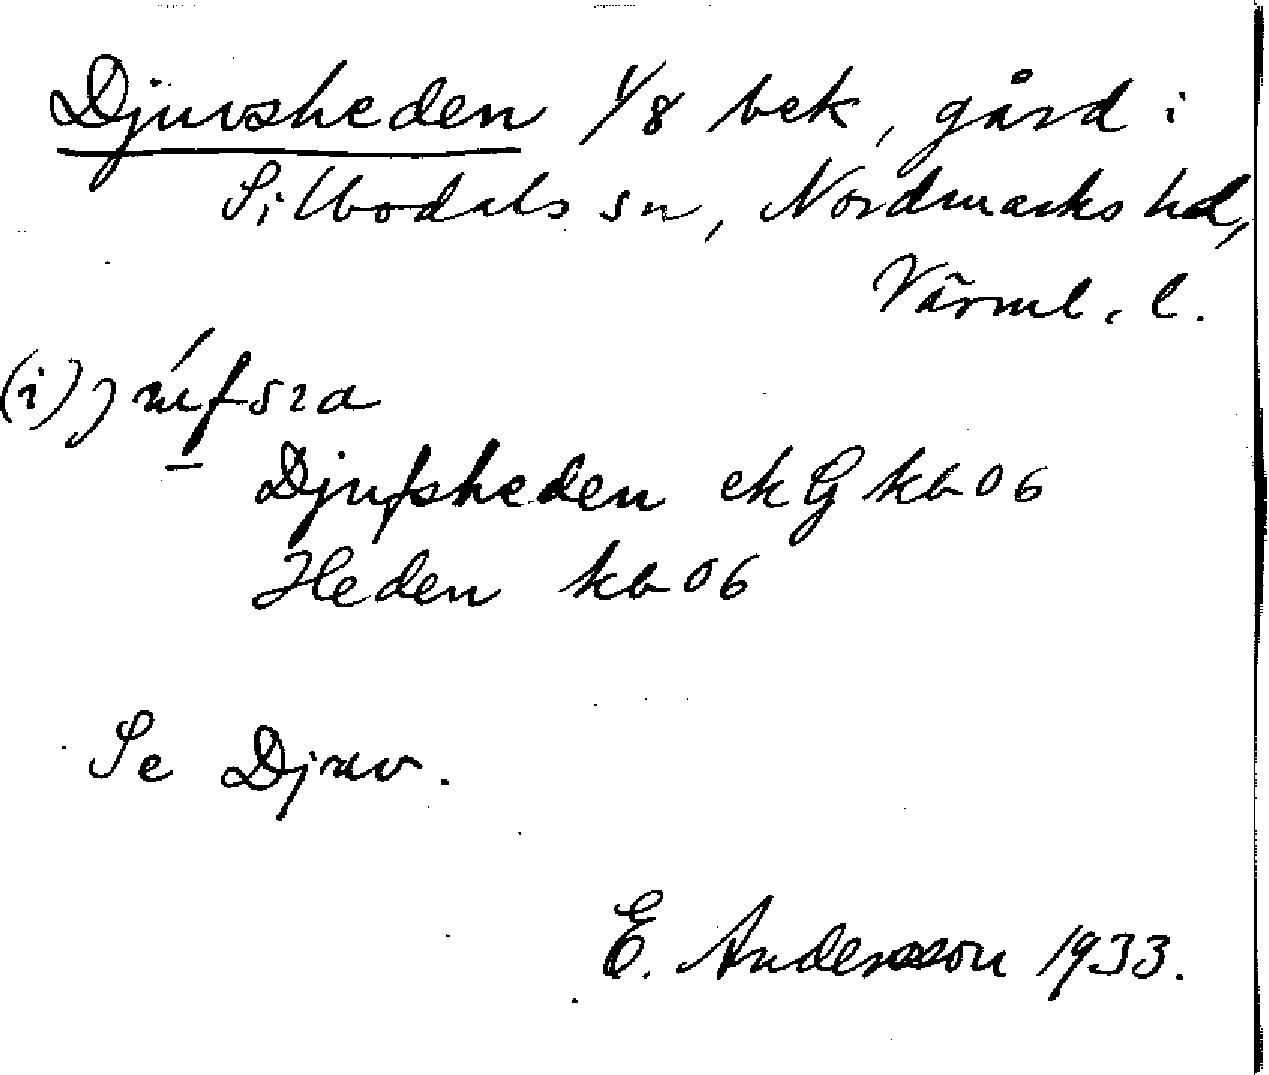 Djuvsheden 1/8 bek, gård i
Silbodals sn, Nordmarks hd,
Värml. l.
(i)
Djufsheden ek G kb 06
Heden kb 06
Se Djuv.
E. Andersson 1933.